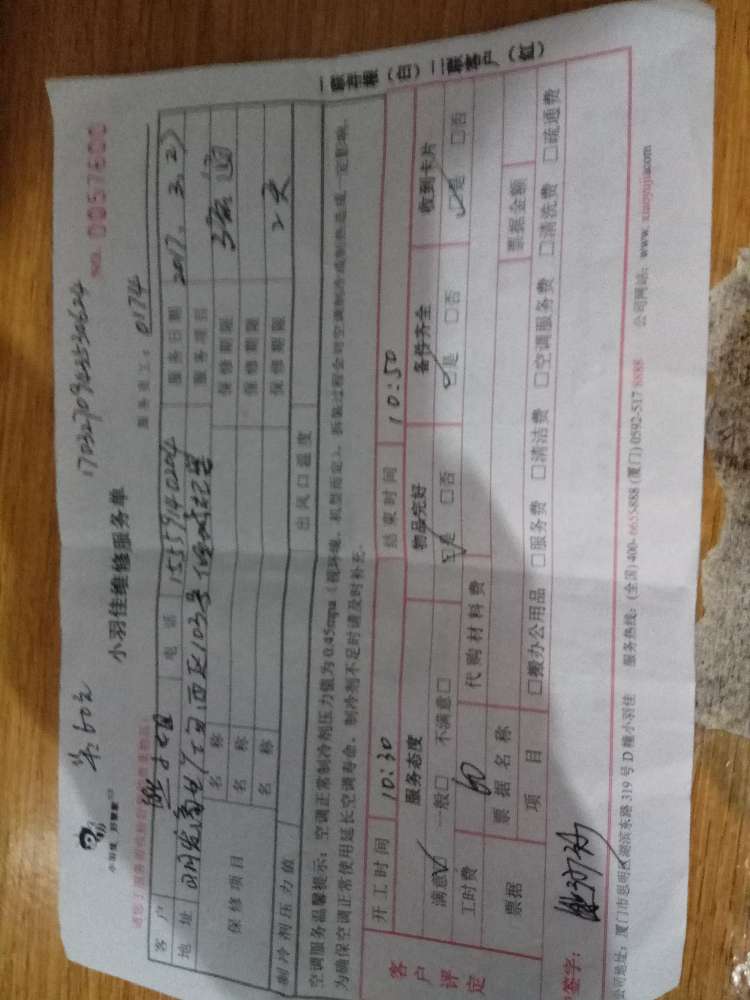 一联存根（白） 二联客户（红）
1703270302530624
NO. 0057600
小羽佳维修服务单
小羽佳 好管家
服务技工：0174
客户
电话
服务日期 2017. 3. 27
地址
服务项目
保修项目
名称 保修期限
名称 保修期限
名称 保修期限 2天
制冷剂压力值 出风口温度
空调服务温馨提示：空调正常制冷剂压力值为0.45mpa（视环境、机型而定），拆装过程会对空调制冷或制热造成一定影响，
为确保空调正常使用延长空调寿命，制冷剂不足时请及时补充。
开工时间 10:30 结束时间 10:50
客户评定
服务态度 物品完好 备件齐全 收到卡片
满意☑ 一般□ 不满意□ ☑是 □否 ☑是 □否 ☑是 □否
工时费 60 代购材料费
票据 票据名称 票据金额
项目 □搬办公用品 □服务费 □清洁费 □空调服务费 □清洗费 □疏通费
签字：
公司地址：厦门市思明区湖滨东路319号D幢小羽佳 服务热线：(全国)400-6655888 (厦门)0592-5178888 公司网站：www.xiaoyujia.com